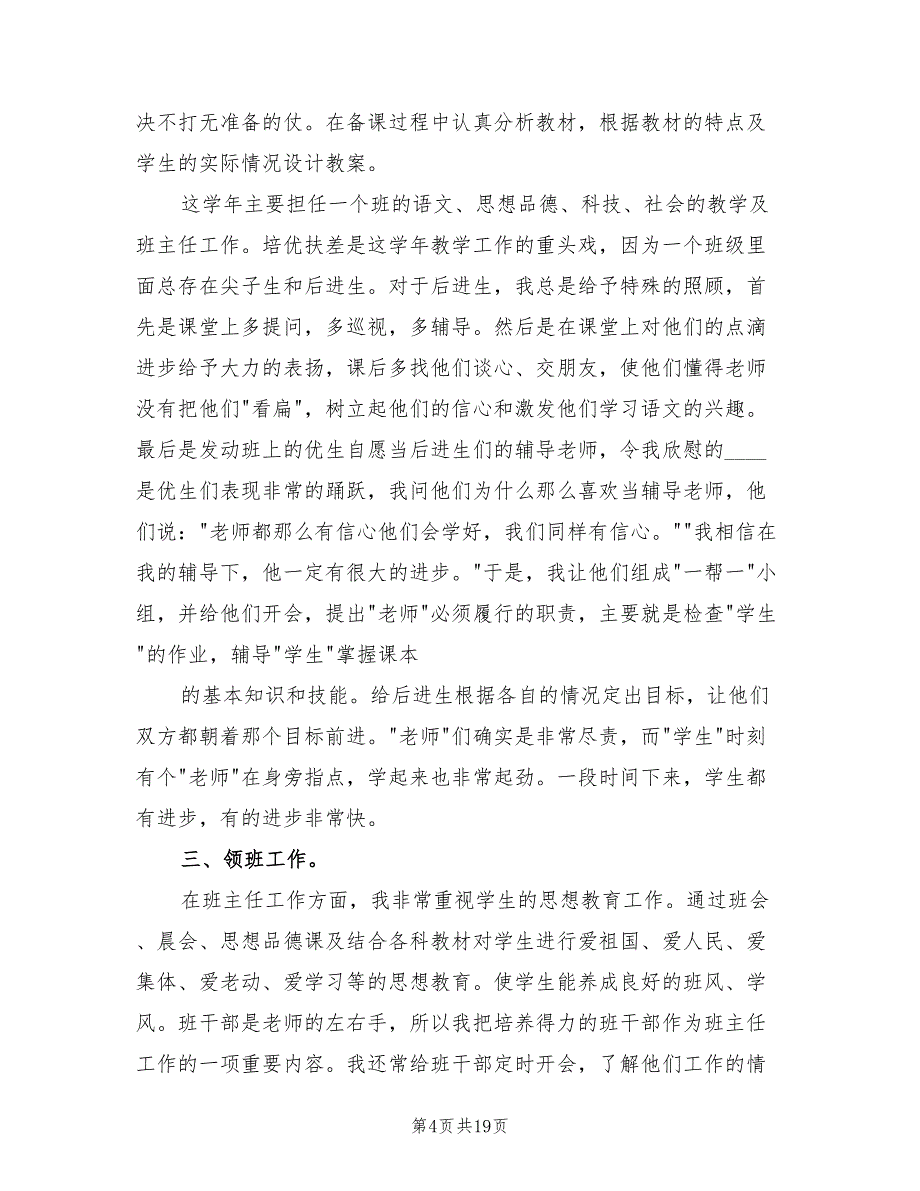 决不打无准备的仗。在备课过程中认真分析教材，根据教材的特点及
学生的实际情况设计教案。
这学年主要担任一个班的语文、思想品德、科技、社会的教学及
班主任工作。培优扶差是这学年教学工作的重头戏，因为一个班级里
面总存在尖子生和后进生。对于后进生，我总是给予特殊的照顾，首
先是课堂上多提问，多巡视，多辅导。然后是在课堂上对他们的点滴
进步给予大力的表扬，课后多找他们谈心、交朋友，使他们懂得老师
没有把他们"看扁"，树立起他们的信心和激发他们学习语文的兴趣。
最后是发动班上的优生自愿当后进生们的辅导老师，令我欣慰的____
是优生们表现非常的踊跃，我问他们为什么那么喜欢当辅导老师，他
们说："老师都那么有信心他们会学好，我们同样有信心。""我相信在
我的辅导下，他一定有很大的进步。"于是，我让他们组成"一帮一"小
组，并给他们开会，提出"老师"必须履行的职责，主要就是检查"学生
"的作业，辅导"学生"掌握课本
的基本知识和技能。给后进生根据各自的情况定出目标，让他们
双方都朝着那个目标前进。"老师"们确实是非常尽责，而"学生"时刻
有个"老师"在身旁指点，学起来也非常起劲。一段时间下来，学生都
有进步，有的进步非常快。
三、领班工作。
在班主任工作方面，我非常重视学生的思想教育工作。通过班会
、晨会、思想品德课及结合各科教材对学生进行爱祖国、爱人民、爱
集体、爱老动、爱学习等的思想教育。使学生能养成良好的班风、学
风。班干部是老师的左右手，所以我把培养得力的班干部作为班主任
工作的一项重要内容。我还常给班干部定时开会，了解他们工作的情
第4页共19页